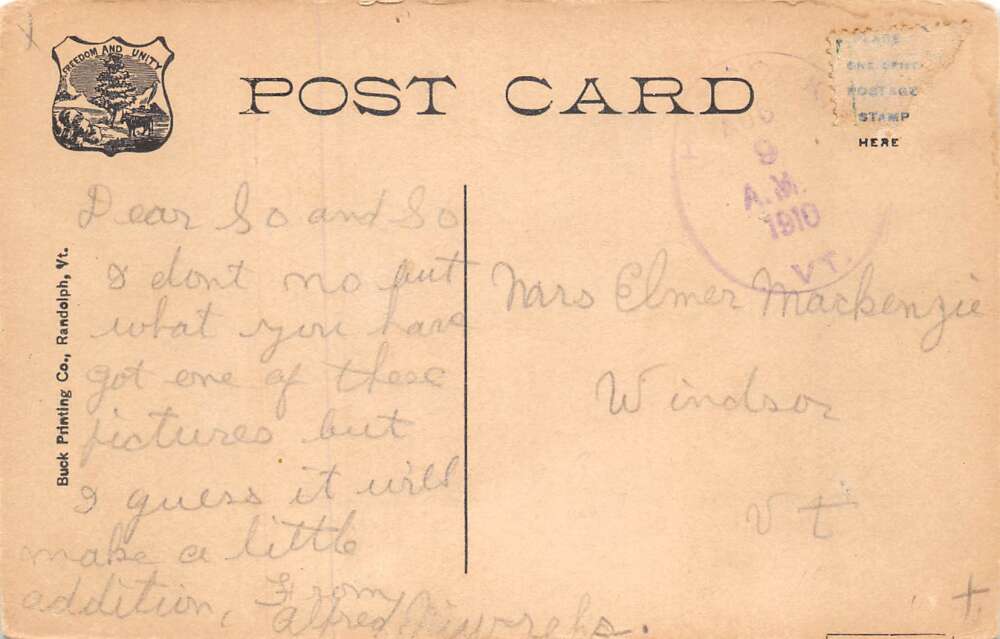 FREEDOM AND UNITY
POST CARD
PLACE
ONE CENT
POSTAGE
STAMP
HERE
AUG
9
A.M.
1910
VT.
Buck Printing Co., Randolph, Vt.
Dear So and So
I dont no but
what you have
got one of these
pictures but
I guess it will
make a little
addition, From
Alfred
Mrs Elmer Mackenzie
Windsor
Vt